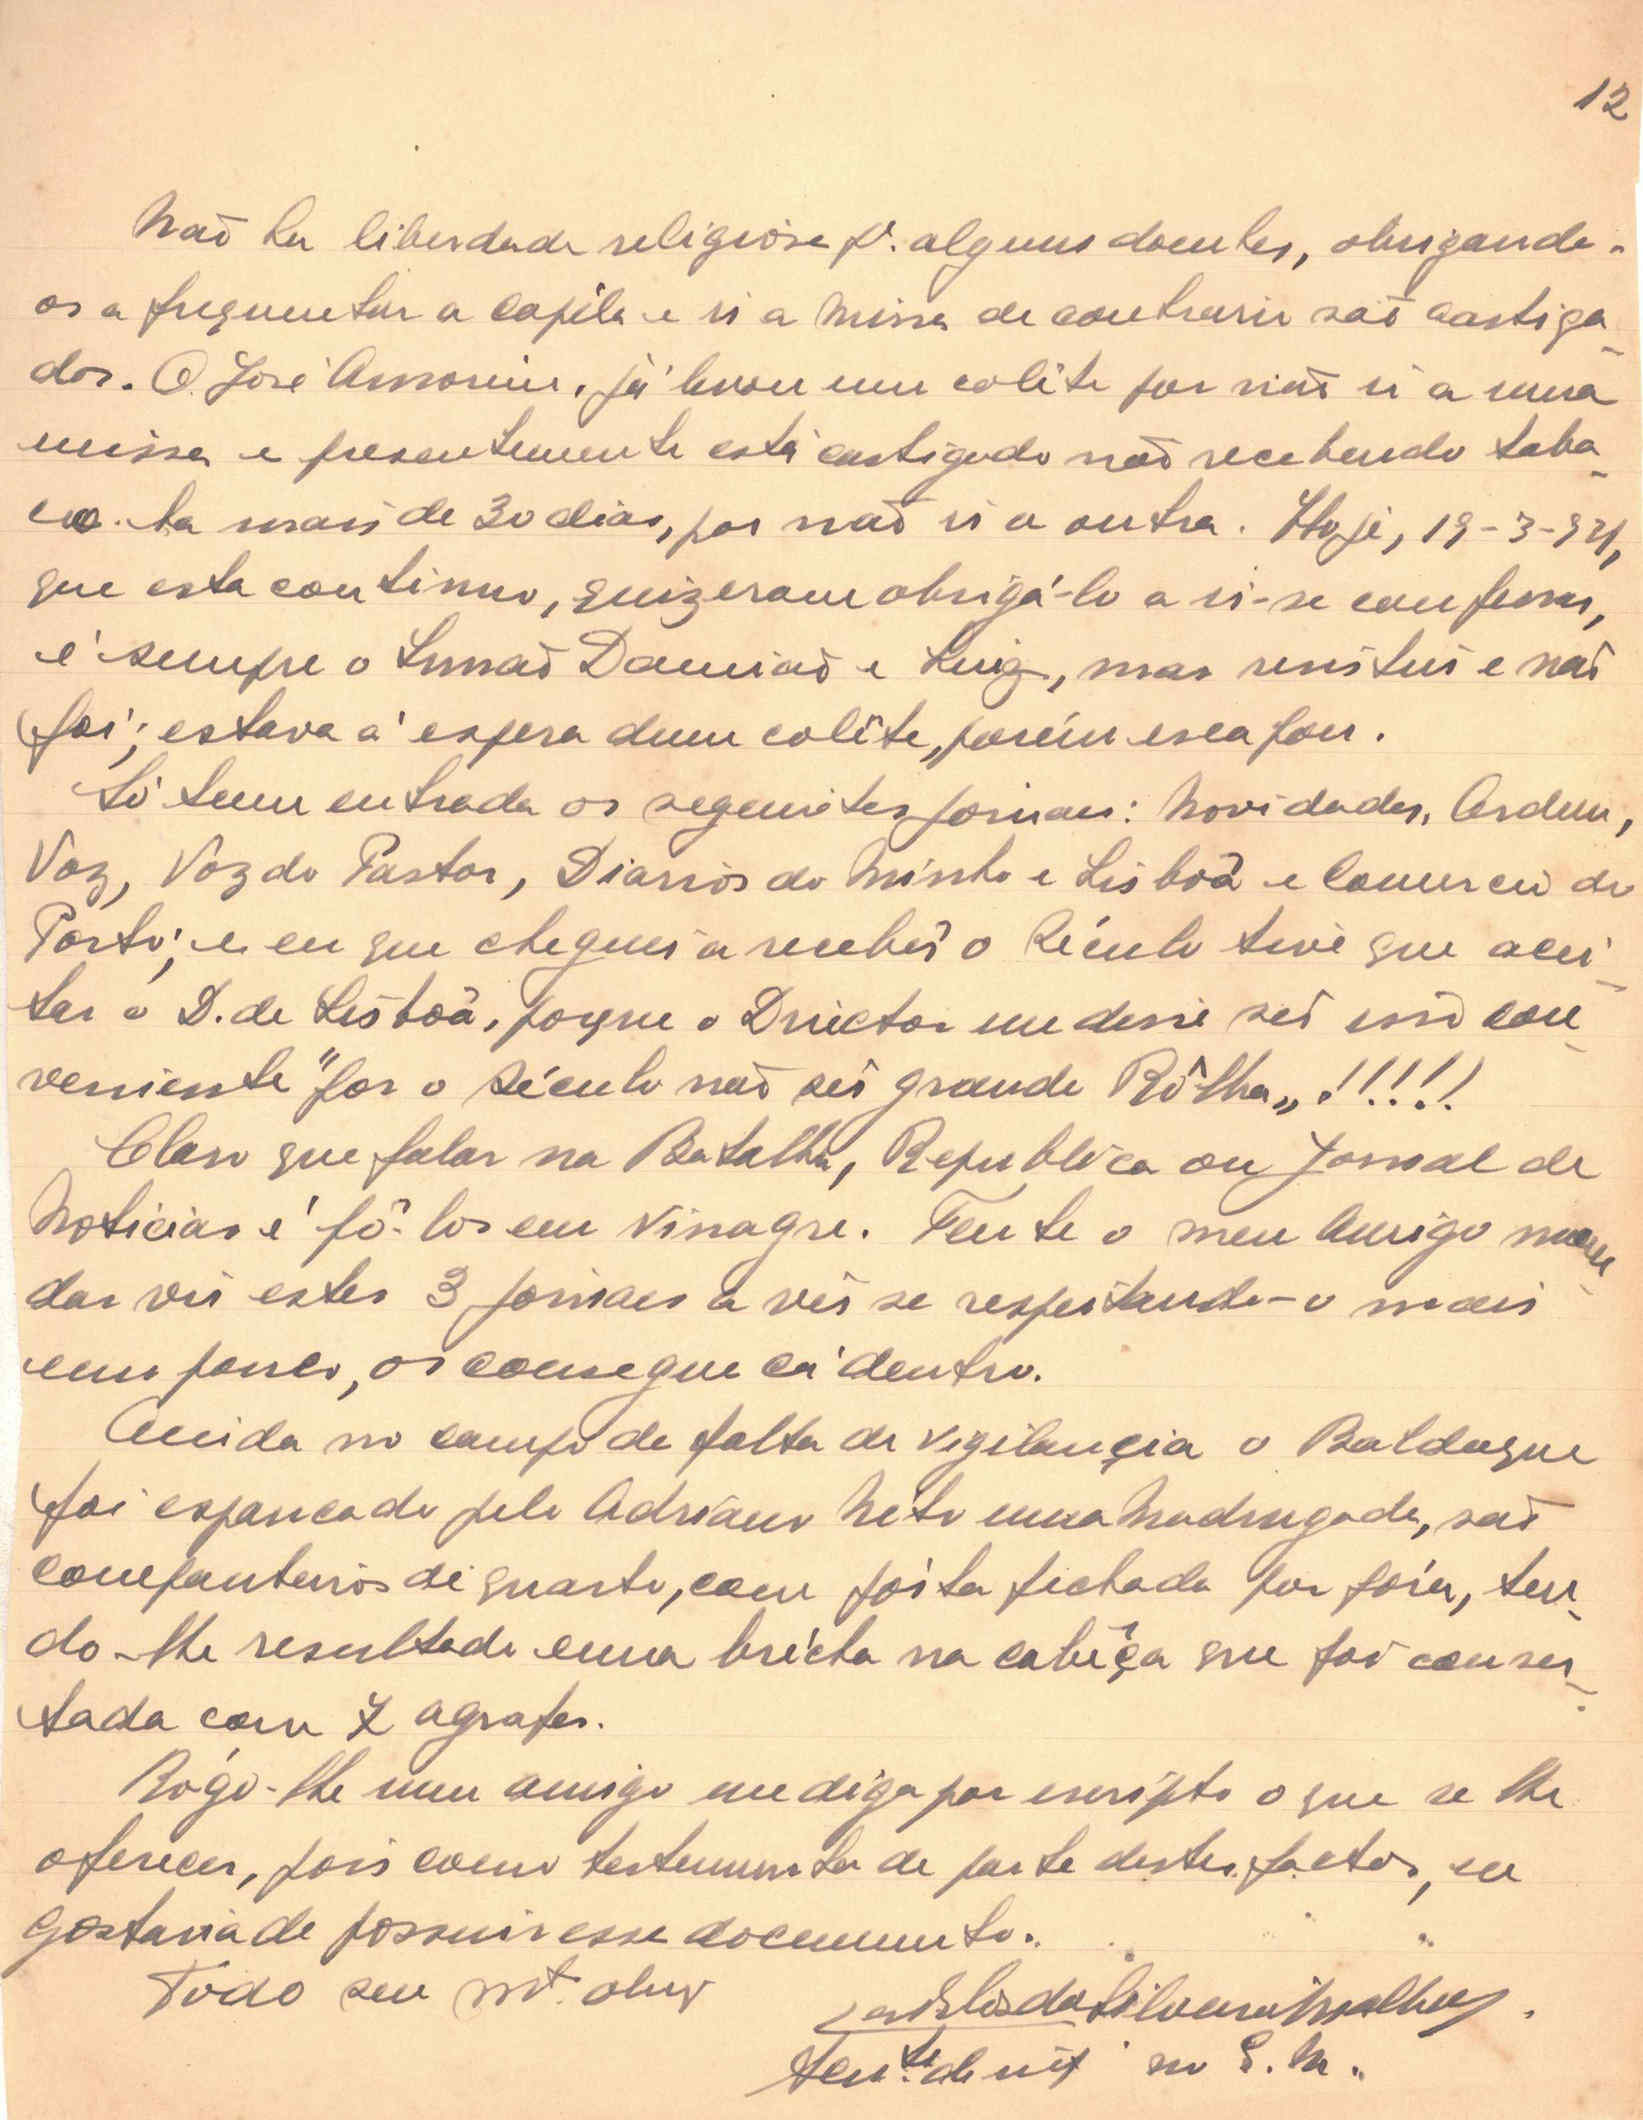 12
Não ha liberdade religiosa p.ª alguns doentes, obrigando-
os a frequentar a capéla e ir a Missa de contrario são castiga-
dos. O José Amorim, já levou um colête por não ir a uma
missa e presentemente está castigado não recebendo taba-
co ha mais de 30 dias, por não ir a outra. Hoje, 19-3-934,
que esta continuo, quizeram obrigá-lo a ir-se confessar,
é sempre o Irmão Damião e Luiz, mas resistui e não
foi; estava á espera dum colête, porém escapou.
Só teem entrada os seguintes jornaes: Novidades, Ordem,
Voz, Voz do Pastor, Diarios do Minho e Lisbôa e Comercio do
Porto; e eu que cheguei a recebêr o Século tive que acei-
tar o D. de Lisbôa, porque o Director me disse sêr isso con-
veniente "por o Século não sêr grande Rôlha„!!!!!
Claro que falar na Batalha, Republica ou Jornal de
Noticias é pô-los em vinagre. Tente o meu Amigo man-
dar vir estes 3 jornaes a vêr se respeitando-o mais
um pouco, os consegue cá dentro.
Ainda no campo de falta de vigilançia o Balduque
foi espancado pelo Adriano Neto numa Madrugada, são
companheiros de quarto, com pórta fechada por fóra, ten-
do-lhe resultado uma brécha na cabêça que foi conser-
tada com 7 agrafes.
Rógo-lhe meu amigo me diga por escripto o que se lhe
oferecer, pois como testemunha de parte destes factos, eu
gostaria de possuir esse documento.
Todo seu mt.º obrg
Carlos da Silveira Malheiro
Ten.te de inf no S. M.